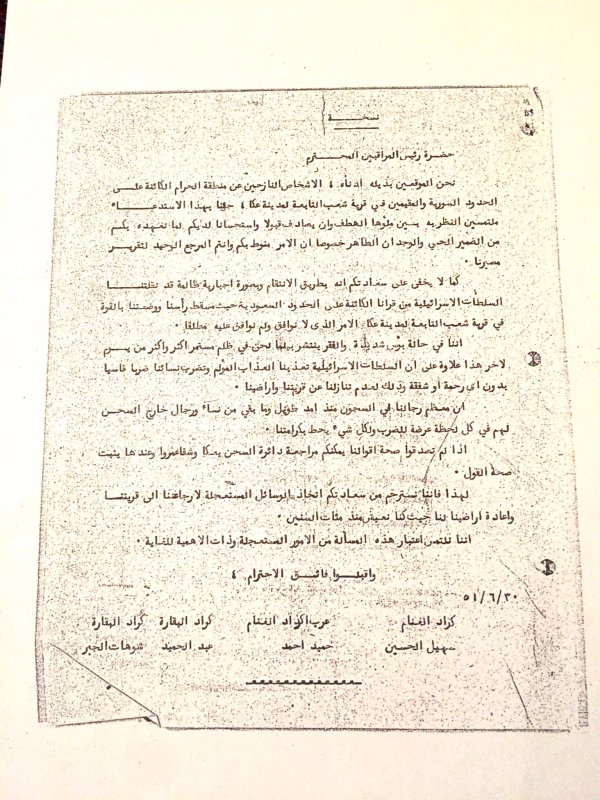 نسخة
حضرة رئيس المراقبين المحترم
نحن الموقعين بذيله ادناه، الاشخاص النازحين عن منطقة الحرام الكائنة على
الحدود السورية والمقيمين في قرية شعب التابعة لمدينة عكا، جئنا بهذا الاستدعاء
ملتمسين النظر به بعين ملؤها العطف وان يصادف قبولا واستحسانا لديكم لما نعهده بكم
من الضمير الحي والوجدان الطاهر خصوصا ان الامر منوط بكم وانتم المرجع الوحيد لتقرير
مصيرنا ٠
كما لا يخفى على سعادتكم انه بطريق الانتقام وبصورة اجبارية ظالمة قد نقلتنا
السلطات الاسرائيلية من قرانا الكائنة على الحدود السعودية حيث مسقط رأسنا ووضعتنا بالقوة
في قرية شعب التابعة لمدينة عكا، الامر الذى لا نوافق ولم نوافق عليه مطلقا ٠
اننا في حالة بؤس شديدة، والفقر ينتشر بيننا نحن في ظلم مستمر اكثر واكثر من يوم
لاخر هذا علاوة على ان السلطات الاسرائيلية تعذبنا العذاب المؤلم وتضرب نسائنا ضربا قاسيا
بدون اي رحمة أو شفقة وذلك لعدم تنازلنا عن قريتنا واراضينا ٠
ان معظم رجالنا في السجون منذ امد طويل وما بقي من نساء ورجال خارج السجن
لهم في كل لحظة عرضة للضرب ولكل شيء يحط بكرامتنا ٠
اذا لم تصدقوا صحة اقوالنا يمكنكم مراجعة دائرة السجن بعكا وشفاعمرو وعندها يثبت
صحة القول ٠
لهذا فاننا نسترحم من سعادتكم اتخاذ الوسائل المستعجلة لارجاعنا الى قريتنا
واعادة اراضينا لنا حيث كنا نعيش منذ مئات السنين ٠
اننا نلتمس اعتبار هذه المسألة من الامور المستعجلة وذات الاهمية للغاية ٠
واقبلوا فائق الاحترام ٠
٥١/٦/٣٠
كراد الغنام عرب اكراد الغنام كراد البقارة كراد البقارة
سهيل الحسين حميد احمد عبد الحميد شوهات الجبر